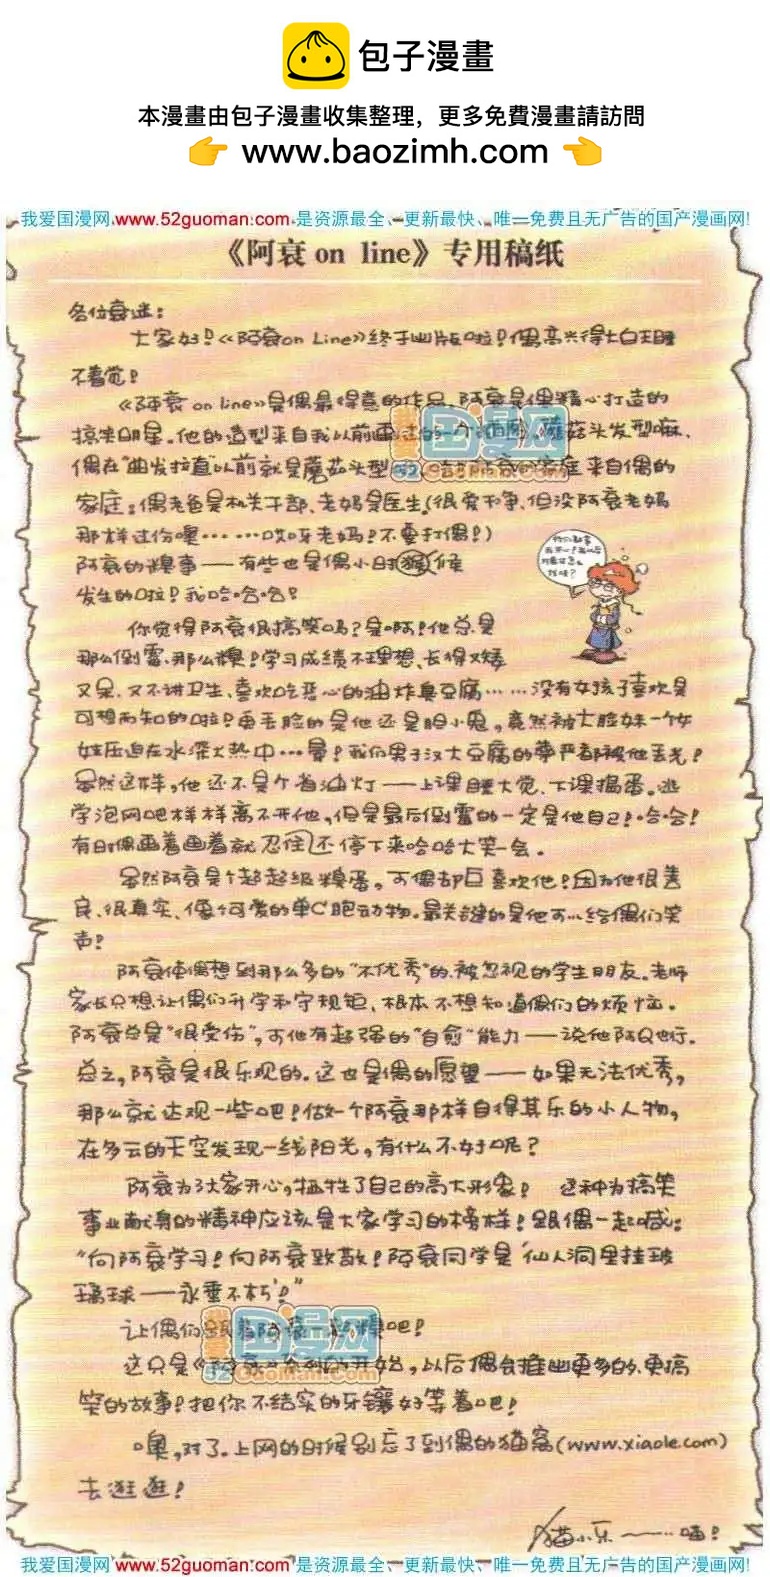 包子漫畫
本漫畫由包子漫畫收集整理，更多免費漫畫請訪問
👉 www.baozimh.com 👈
我爱国漫网 www.52guoman.com 是资源最全、更新最快、唯一免费且无广告的国产漫画网!
《阿衰 on line》专用稿纸
各位衰迷：
大家好！《阿衰on Line》终于出版啦！偶高兴得大白天睡
不着觉！
《阿衰 on line》是偶最得意的作品，阿衰是偶精心打造的
搞笑明星。他的造型来自我以前画过的一个 蘑菇头发型嘛、
偶在“曲发拉直”以前就是蘑菇头型 家庭来自偶的
家庭：偶老爸是机关干部、老妈是医生（很爱干净、但没阿衰老妈
那样过份噢……哎呀老妈！不要打偶！）
阿衰的糗事——有些也是偶小时候
发生的啦！我哈哈哈！
你觉得阿衰很搞笑吗？是啊！他总是
那么倒霉、那么糗！学习成绩不理想、长得又矮
又呆、又不讲卫生、喜欢吃恶心的油炸臭豆腐……没有女孩子喜欢是
可想而知的啦！更丢脸的是他还是胆小鬼，竟然被大脸妹一个女
娃压迫在水深火热中…晕！我们男子汉大豆腐的尊严都被他丢光！
虽然这样，他还不是个省油灯——上课睡大觉、下课捣蛋。逃
学泡网吧样样离不开他，但是最后倒霉的一定是他自己！哈哈！
有时偶画着画着就忍住不停下来哈哈大笑一会。
虽然阿衰是个超超级糗蛋，可偶却巨喜欢他！因为他很善
良、很真实、像个可爱的单C胞动物。最关键的是他可以给偶们笑
声！
阿衰使偶想到那么多的“不优秀”的、被忽视的学生朋友。老师
家长只想让偶们升学和守规矩、根本不想知道偶们的烦恼。
阿衰总是“很受伤”，可他有超强的“自愈”能力——说他阿Q也行。
总之，阿衰是很乐观的。这也是偶的愿望——如果无法优秀，
那么就达观一些吧！做一个阿衰那样自得其乐的小人物，
在多云的天空发现一线阳光，有什么不好呢？
阿衰为了大家开心，牺牲了自己的高大形象！ 这种为搞笑
事业献身的精神应该是大家学习的榜样！跟偶一起喊：
“向阿衰学习！向阿衰致敬！阿衰同学是‘仙人洞里挂玻
璃球——永垂不朽’！”
让偶们跟着阿衰 糗吧！
这只是《阿衰》系列的开始，以后偶会推出更多的、更搞
笑的故事！把你不结实的牙镶好等着吧！
噢，对了。上网的时候别忘了到偶的猫窝（www.xiaole.com）
去逛逛！
猫小乐——…喵！
我爱国漫网 www.52guoman.com 是资源最全、更新最快、唯一免费且无广告的国产漫画网!